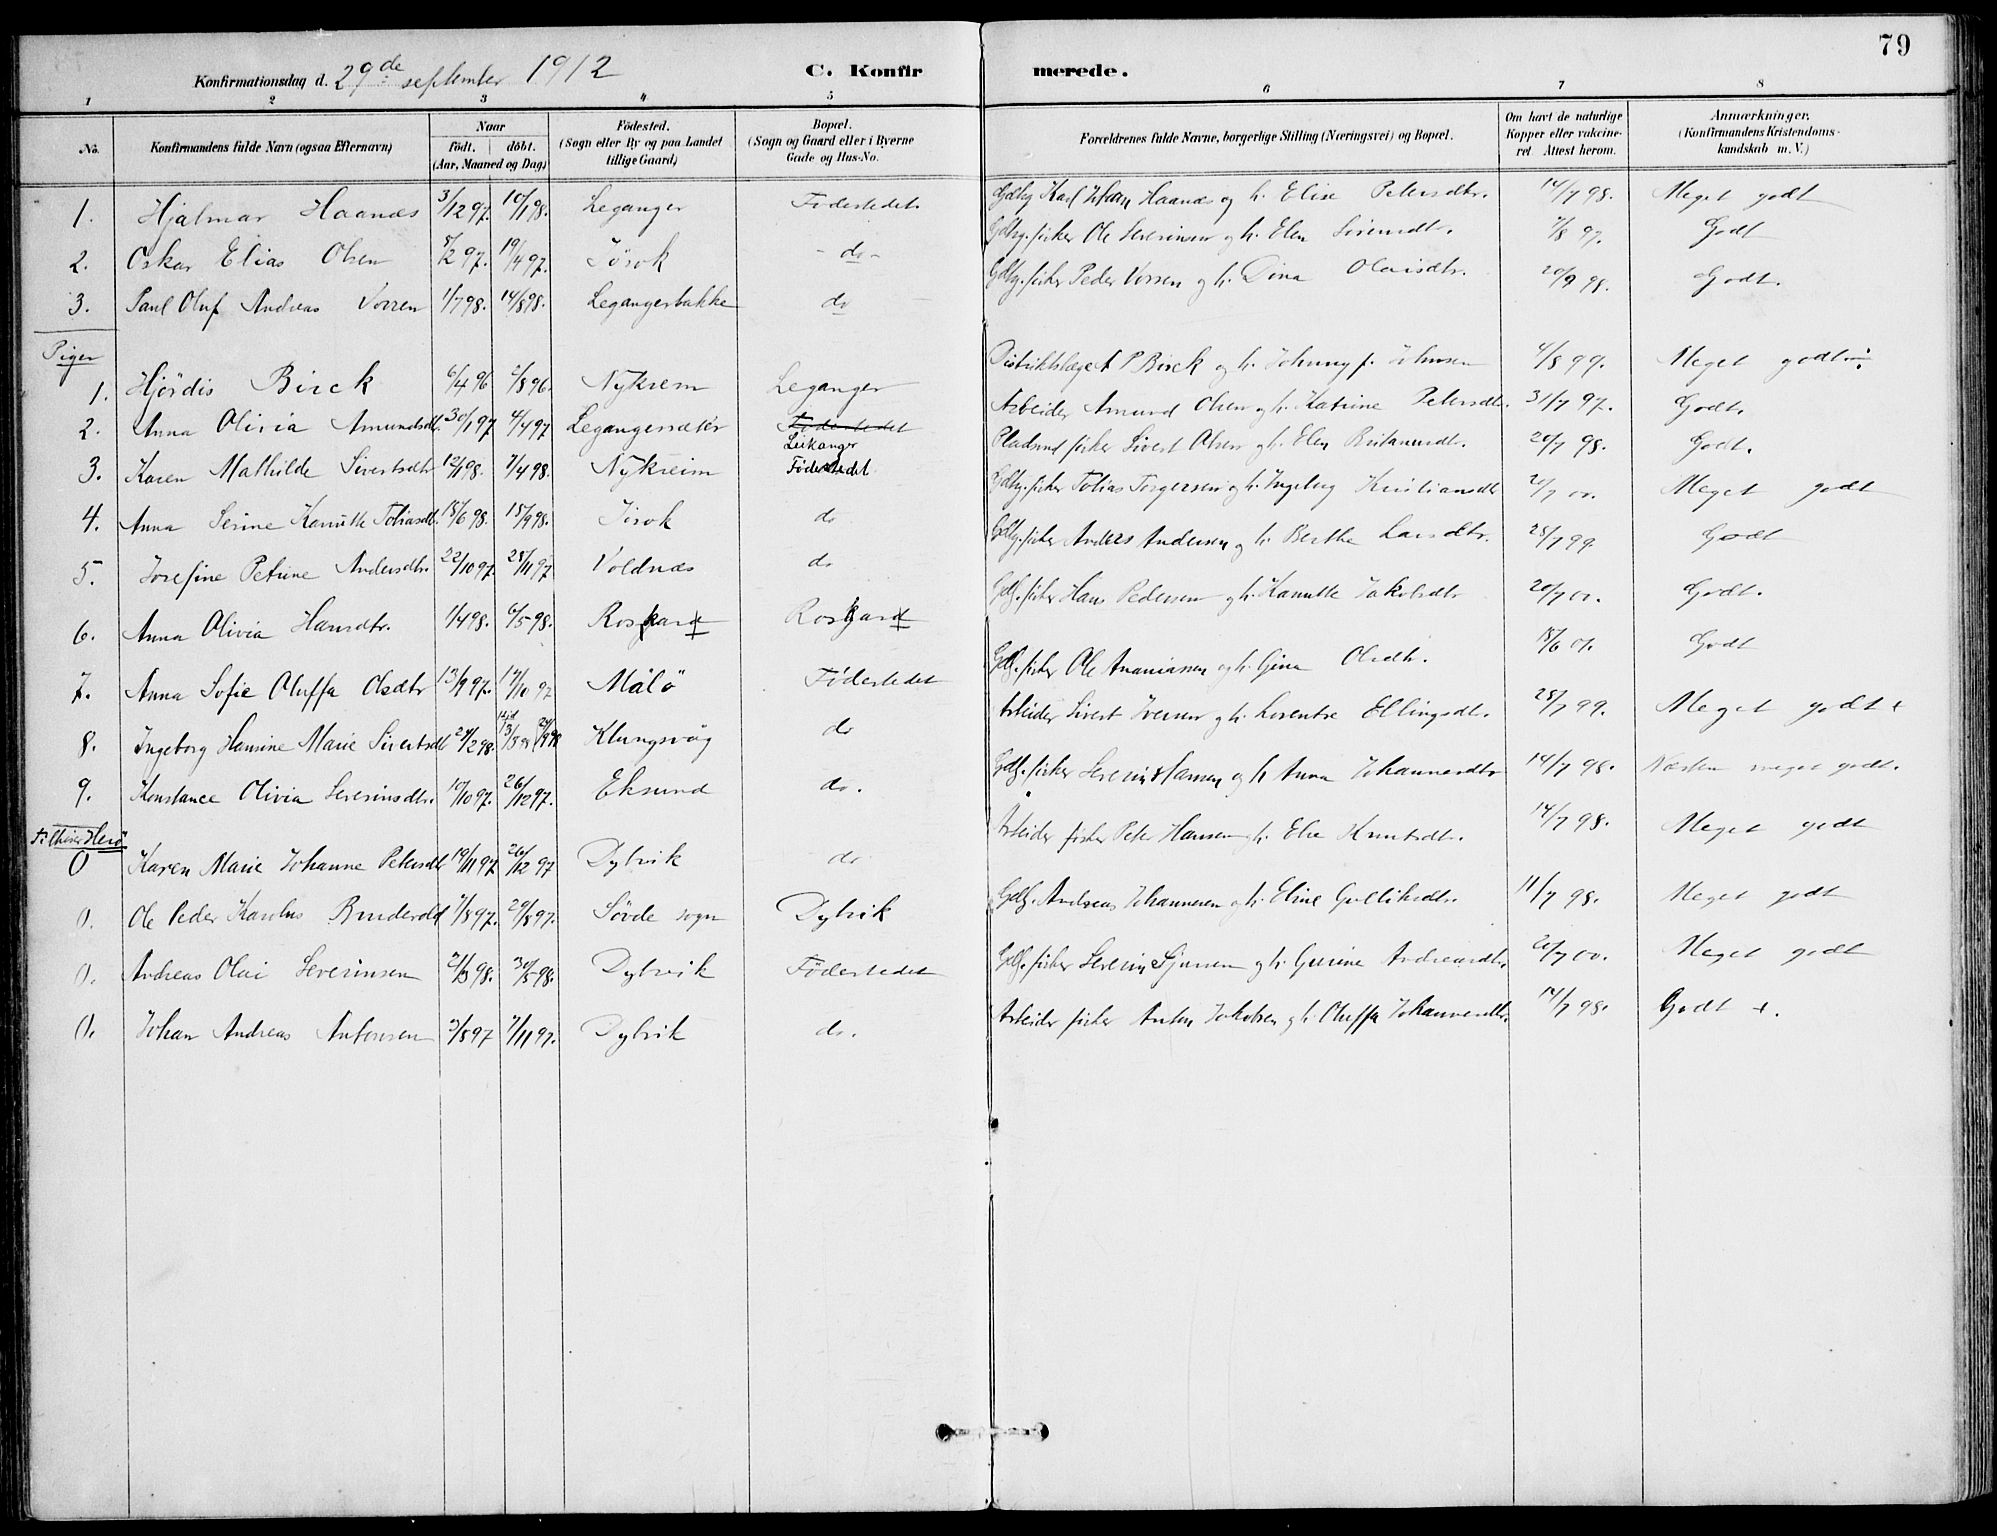 79
Konfirmationsdag d. 29de september 1912 C. Konfirmerede.
1 2 3 4 5 6 7 8
No. Konfirmandens fulde Navn (ogsaa Efternavn) Naar født. døbt. (Aar, Maaned og Dag) Fødested. (Sogn eller By og paa Landet tillige Gaard) Bopæl. (Sogn og Gaard eller i Byerne Gade og Hus-No. Forældrenes fulde Navne, borgerlige Stilling (Næringsvei) og Bopæl. Om havt de naturlige Kopper eller vakcineret. Attest herom. Anmærkninger. (Konfirmandens Kristendomskundskab m. V.)
1. Hjalmar Haanæs 3/12 97. 10/1 98. Leganger Fødestedet. Gdbg Karl Johan Haanæs og h. Elise Petersdtr. 14/7 98. Meget godt
2. Oskar Elias Olsen 5/2 97. 19/4 97. Jøsok - do - Gdbg. fisker Ole Severinsen og h. Elen Sivertsdtr. 7/8 97. Godt
3. Paul Oluf Andreas Vorren 1/7 98. 14/8 98. Legangerbakke do Gdbg. fisker Peder Vorren og h. Dina Olaisdtr. 20/9 98. Godt.
Piger
1. Hjørdis Birck 6/4 96 2/8 96. Nykrem Leganger Distriktslæge A P Birck og h. Johanny f. Johnsen 4/8 99. Meget godt
2. Anna Olivia Amundsdtr. 30/1 97 4/4 97 Legangersæter Fødestedet Leikanger Arbeider Amund Olsen og h. Katrine Petersdtr. 31/7 97. Godt.
3. Karen Mathilde Sivertsdtr 12/1 98. 7/4 98. Nykreim Fødestedet Pladsmd fisker Sivert Olsen og h. Elen Britanusdtr. 20/7 98. Godt.
4. Anna Serine Kanutte Tobiasdtr. 18/6 98. 18/9 98. Jøsok do Gdbg. fisker Tobias Torgersen og h. Ingeborg Kristiansdtr 2/7 00. Meget godt
5. Josefine Petrine Andersdtr. 22/10 97. 28/11 97 Voldnæs do Gdbg. fisker Anders Andersen og h. Berthe Larsdtr. 28/7 99 Godt
6. Anna Olivia Hansdtr. 1/4 98. 6/5 98. Rosgard Rosgard Gdbg. fisker Hans Pedersen og h. Kanutte Jakobsdtr 20/7 00. Godt.
7. Anna Sofie Oluffa Olsdtr 13/9 97. 17/10 97 Målø Fødestedet Gdbg. fisker Ole Ananiassen og h. Gina Olsdtr. 18/6 01. Godt
8. Ingeborg Hansine Marie Sivertsdtr 24/2 98. Klungsvåg do Arbeider Sivert Iversen og h. Lorentse Ellingsdtr. 28/7 99. Meget godt +
9. Konstance Olivia Severinsdtr. 10/10 97. 26/12 97. Eksund do. Gdbg. fisker Severin Hansen og h Anna Johannesdtr 14/7 98. Næsten meget godt.
Herø
0 Karen Marie Johanne Petersdtr 19/11 97. 26/12 97 Dybvik do Arbeider fisker Peter Hansen og h. Else Knutsdtr. 14/7 98. Meget godt
0. Ole Peder Karolus Brudevold 7/8 97. 29/8 97. Søvde sogn Dybvik Gdbg. Andreas Johannesen og h. Eline Gulliksdtr. 11/7 98. Meget godt
0. Andreas Olai Severinsen 2/3 98. 30/5 98. Dybvik Fødestedet Gdbg. fisker Severin Sjursen og h. Gurine Andreasdtr. 20/7 00. Meget godt
0. Johan Andreas Antonsen 3/8 97 7/11 97. Dybvik do. Arbeider fisker Anton Jakobsen og h. Oluffa Johannesdtr. 14/7 98. Godt +.